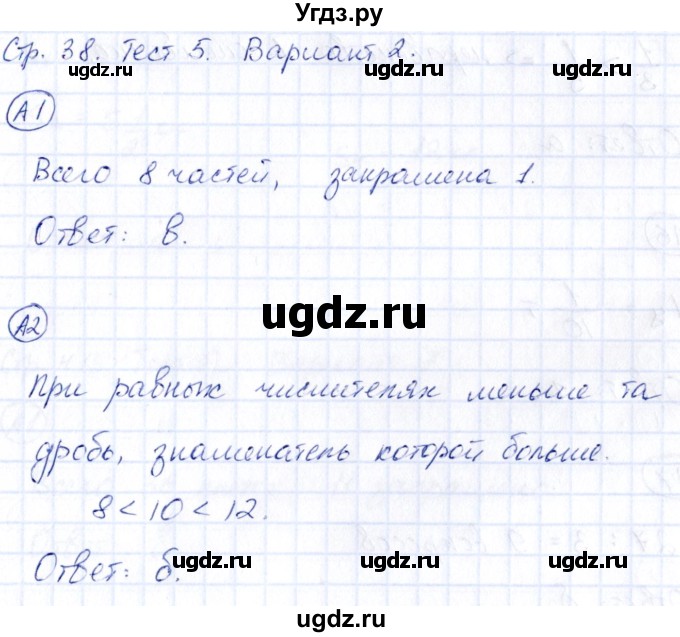 Угдз.ру
Стр. 38. Тест 5. Вариант 2.
А1
Всего 8 частей, закрашена 1.
Ответ: в.
ugdz.ru
А2
При равных числителях меньше та
дробь, знаменатель которой больше.
8 < 10 < 12.
ugdz.ru ugdz.ru ugdz.ru
Ответ: б.
ugdz.ru